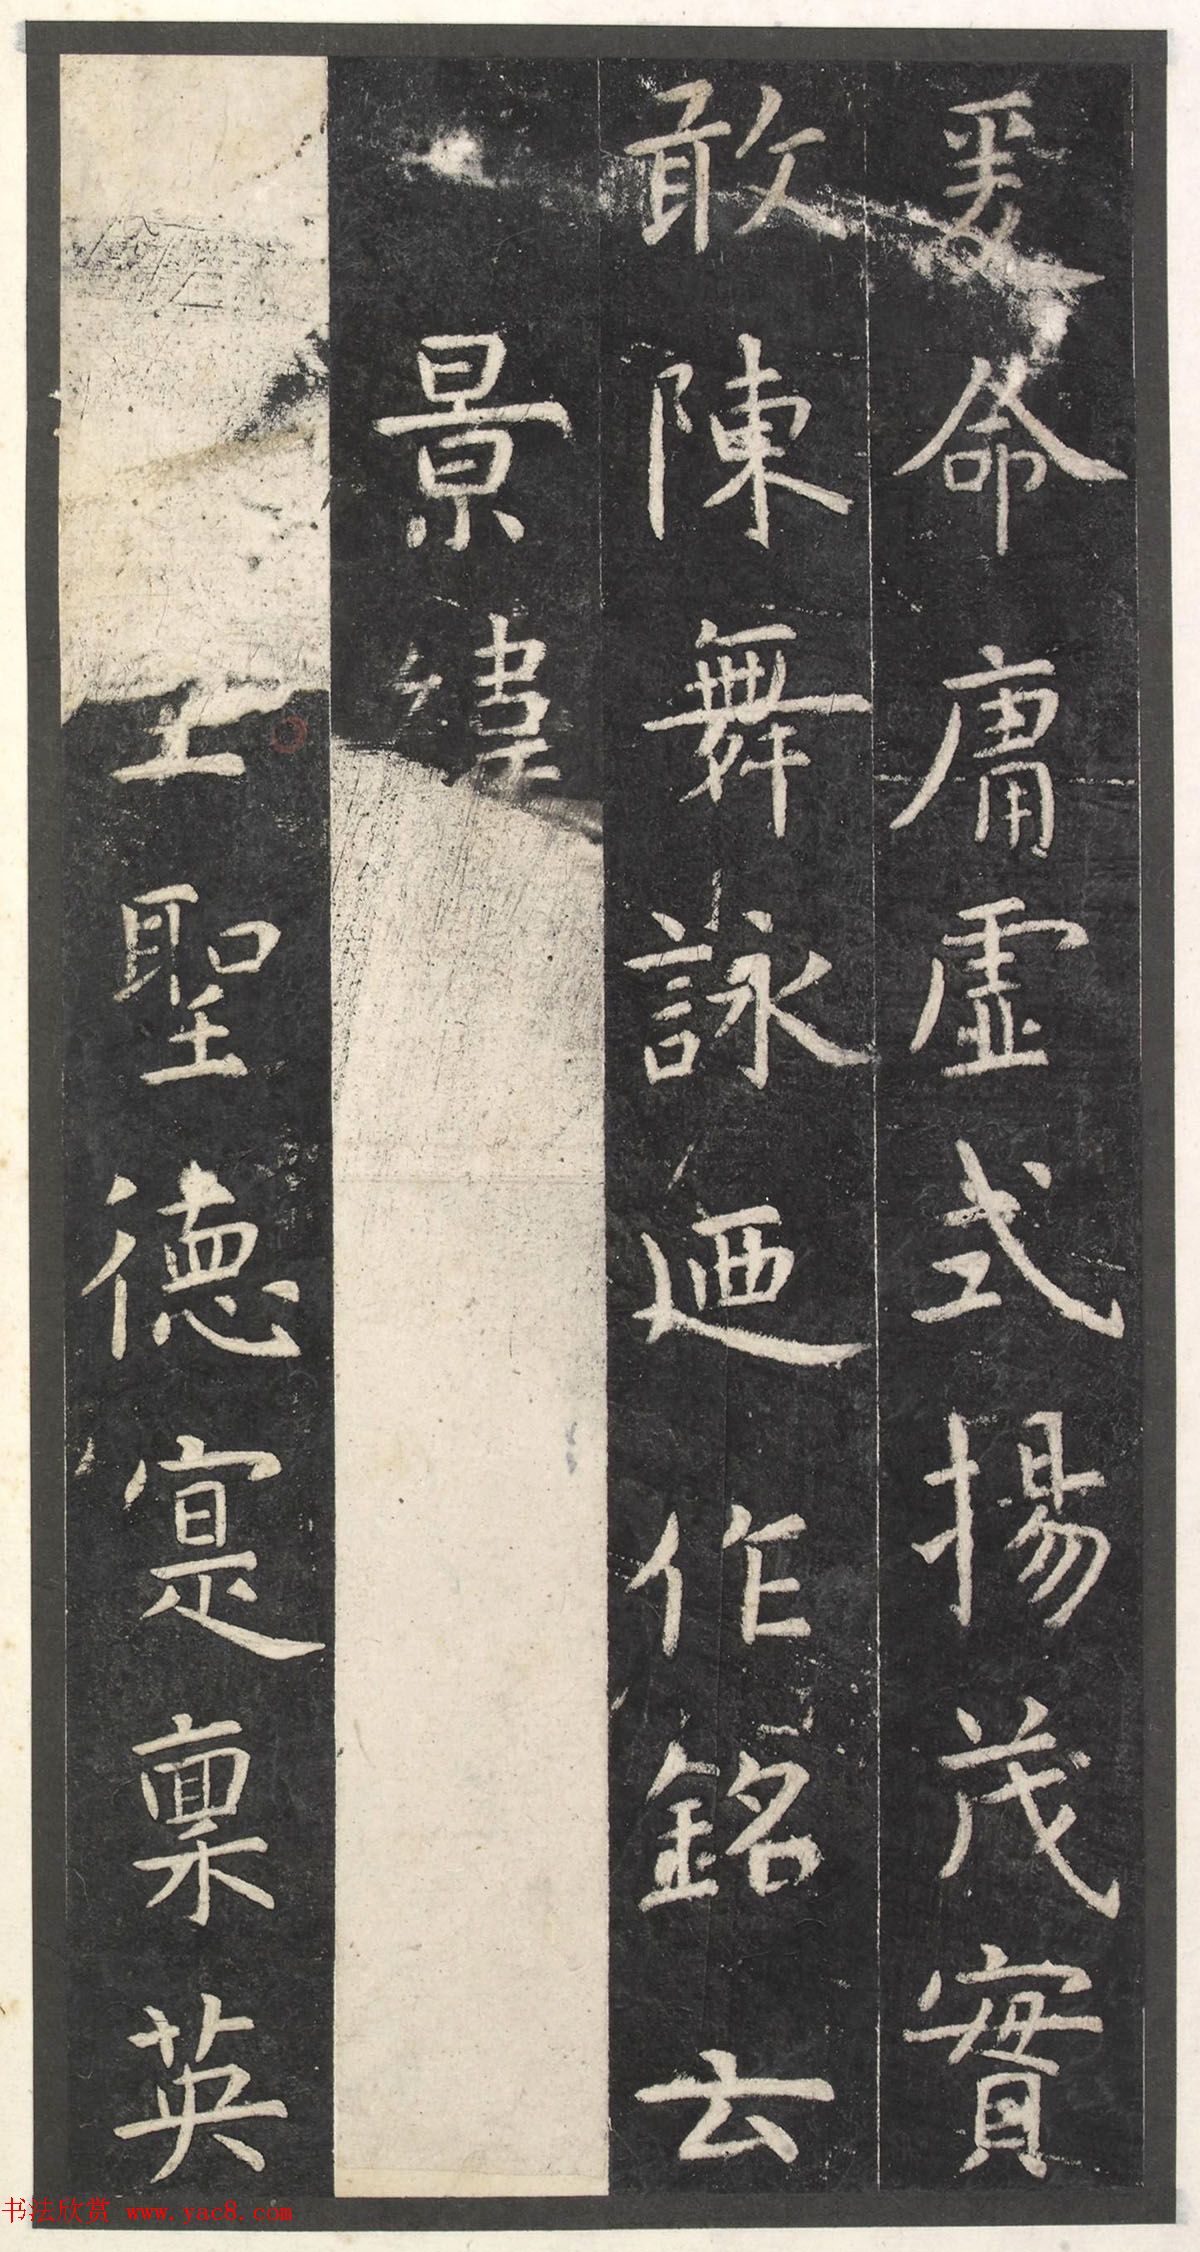 爰命庸虛式揚茂實
敢陳舞詠廼作銘云
景緯
上聖德寔稟英
书法欣赏 www.yac8.com